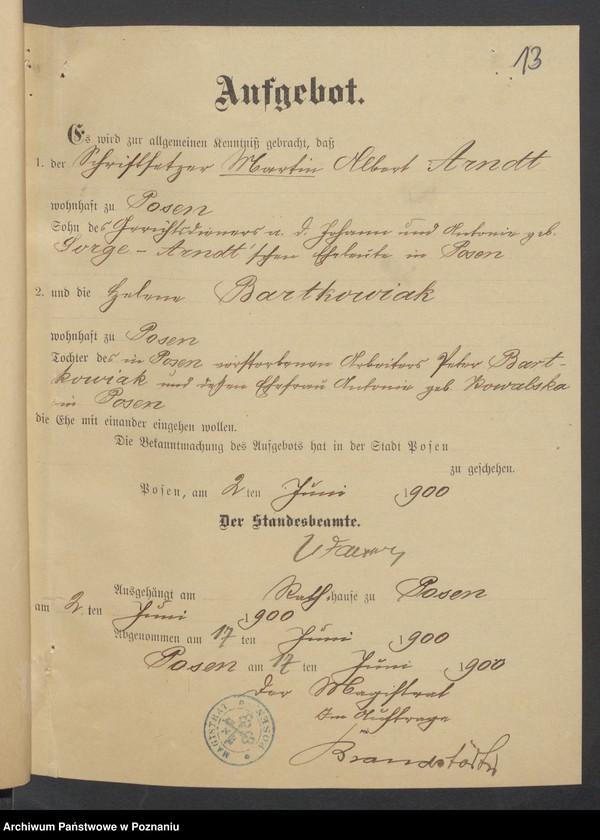 13
Aufgebot.
Es wird zur allgemeinen Kenntniß gebracht, daß
1. der Schriftsetzer Martin Albert Arndt
wohnhaft zu Posen
Sohn des Gerichtsdieners a. D. Johann und Antonie geb.
Sorge-Arndt'schen Eheleute in Posen
2. und die Helene Bartkowiak
wohnhaft zu Posen
Tochter des in Posen verstorbenen Arbeiters Peter Bart-
kowiak und dessen Ehefrau Antonie geb. Kowalska
in Posen
die Ehe mit einander eingehen wollen.
Die Bekanntmachung des Aufgebots hat in der Stadt Posen
zu geschehen.
Posen, am 2 ten Juni 1900
Der Standesbeamte.
Ausgehängt am Rathhause zu Posen
am 2 ten Juni 1900
Abgenommen am 17 ten Juni 1900
Posen am 17 ten Juni 1900
Der Magistrat
Im Auftrage
MAGISTRAT POSEN
Archiwum Państwowe w Poznaniu